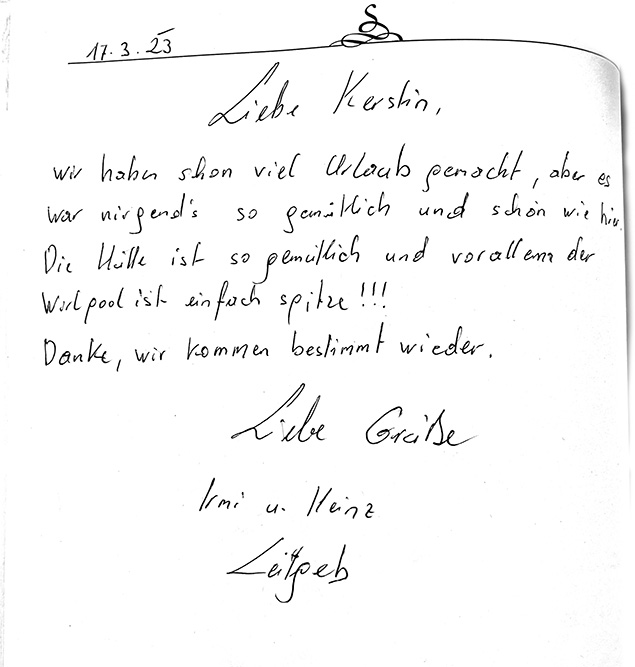 17.3.23
Liebe Kerstin,
wir haben shon viel Urlaub gemacht, aber es
war nirgend's so gemütlich und schön wie hier.
Die Hütte ist so gemütlich und vorallem der
Wirlpool ist einfach spitze!!!
Danke, wir kommen bestimmt wieder.
Liebe Grüße
Irmi u. Heinz
Leitgeb